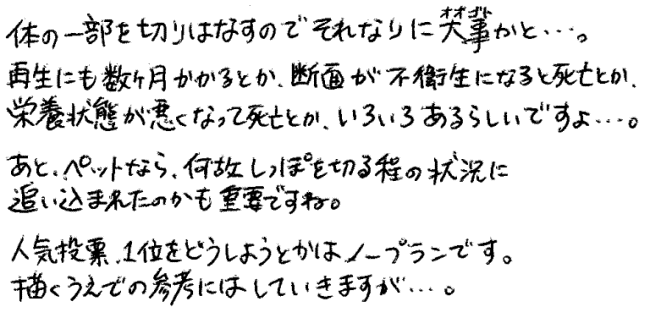 体の一部を切りはなすのでそれなりに大事かと…。
オオゴト
再生にも数ヶ月かかるとか、断面が不衛生になると死亡とか、
栄養状態が悪くなって死亡とか、いろいろあるらしいですよ…。
あと、ペットなら、何故しっぽを切る程の状況に
追い込まれたのかも重要ですね。
人気投票、1位をどうしようとかはノープランです。
描くうえでの参考にはしていきますが…。